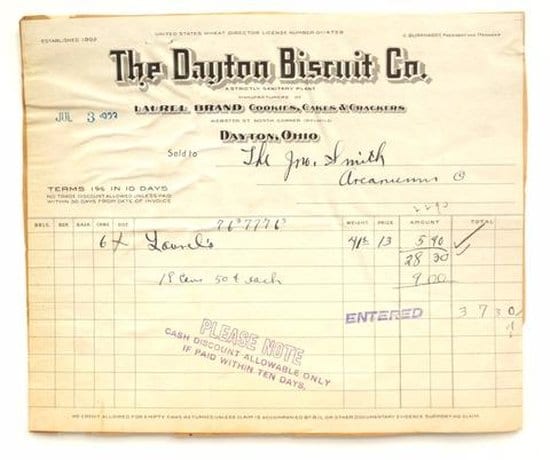 UNITED STATES WHEAT DIRECTOR LICENSE NUMBER
ESTABLISHED
PRESIDENT AND MANAGER
The Dayton Biscuit Co.
A STRICTLY SANITARY PLANT
MANUFACTURERS OF
LAUREL BRAND COOKIES, CAKES & CRACKERS
JUL 3
WEBSTER ST. NORTH CORNER
DAYTON, OHIO
Sold to The Jno. Smith
TERMS 1% IN 10 DAYS
NO TRADE DISCOUNT ALLOWED UNLESS PAID
WITHIN 30 DAYS FROM DATE OF INVOICE
BBLS. BOX. CANS WEIGHT PRICE AMOUNT TOTAL
6 Laurel's 13 5 90
28 30
18 Cans 50¢ each 9.00
ENTERED 37 30
PLEASE NOTE
CASH DISCOUNT ALLOWABLE ONLY
IF PAID WITHIN TEN DAYS.
NO CREDIT ALLOWED FOR EMPTY CANS RETURNED UNLESS CLAIM IS ACCOMPANIED BY B/L OR OTHER DOCUMENTARY EVIDENCE SUPPORTING CLAIM.